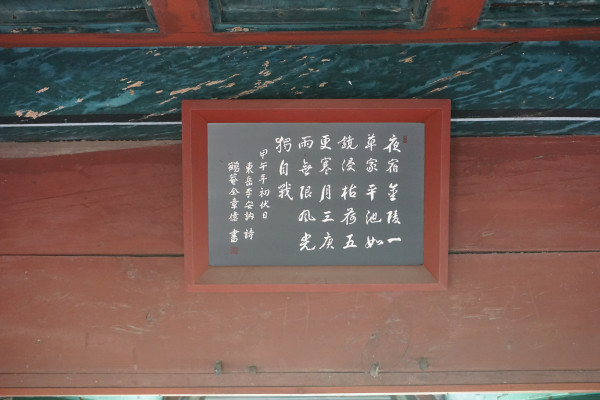 夜宿金陵一
草家平池如
鏡浸枯荷五
更寒月三庚
雨無限風光
獨自
甲午年初伏日
東岳李安訥 詩
金章 書